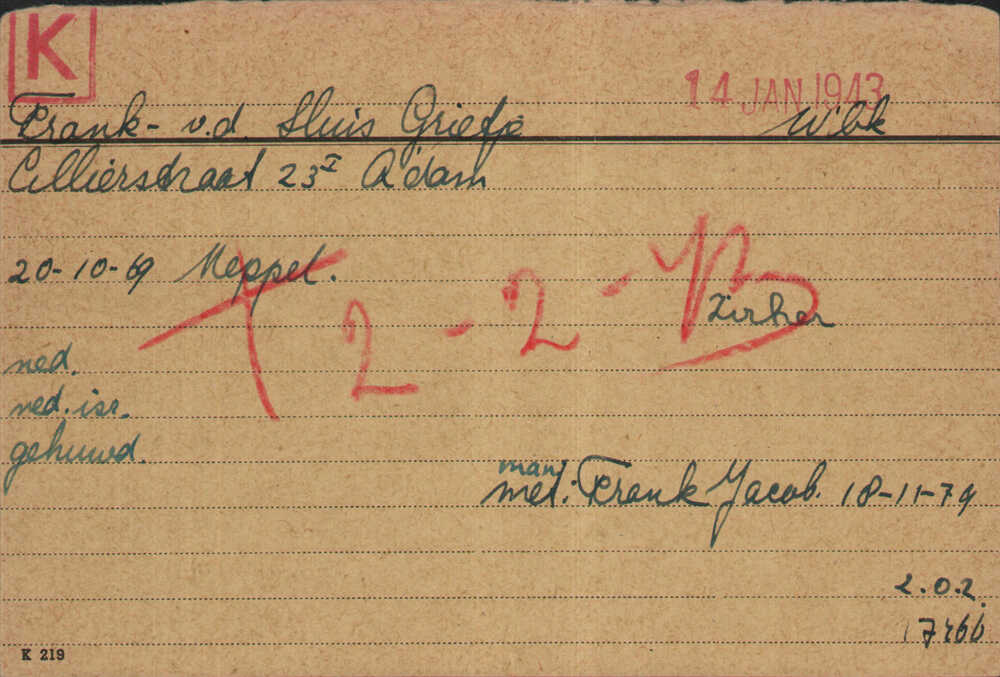 K
14 JAN 1943
Frank- v.d. Sluis Grietje Wbk
Cilliersstraat 23 I A'dam
20-10-69 Meppel.
T 2-2-43
Zirker
ned.
ned. isr.
gehuwd.
man
met: Frank Jacob. 18-11-79
2.0.2.
K 219